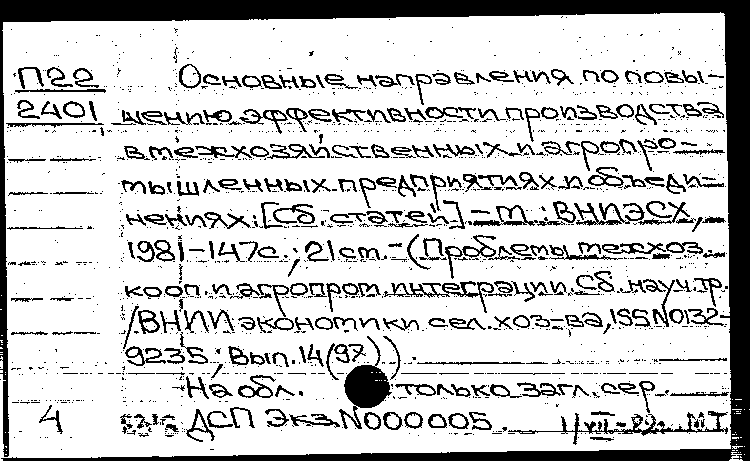 П22
2401
Основные направления по повы-
шению эффективности производства
в межхозяйственных и агропро-
мышленных предприятиях и объеди-
нениях: [Сб. статей]. - М.: ВНИЭСХ,
1981 - 147с.; 21 см. - (Проблемы межхоз.
кооп. и агропром. интеграции. Сб. науч. тр.
/ВНИИ экономики сел. хоз-ва, ISSN 0132-
9235; Вып. 14(97)).
На обл. только загл. сер.
4 ДСП Экз. N000005. 11/VII-82г. М.Т.